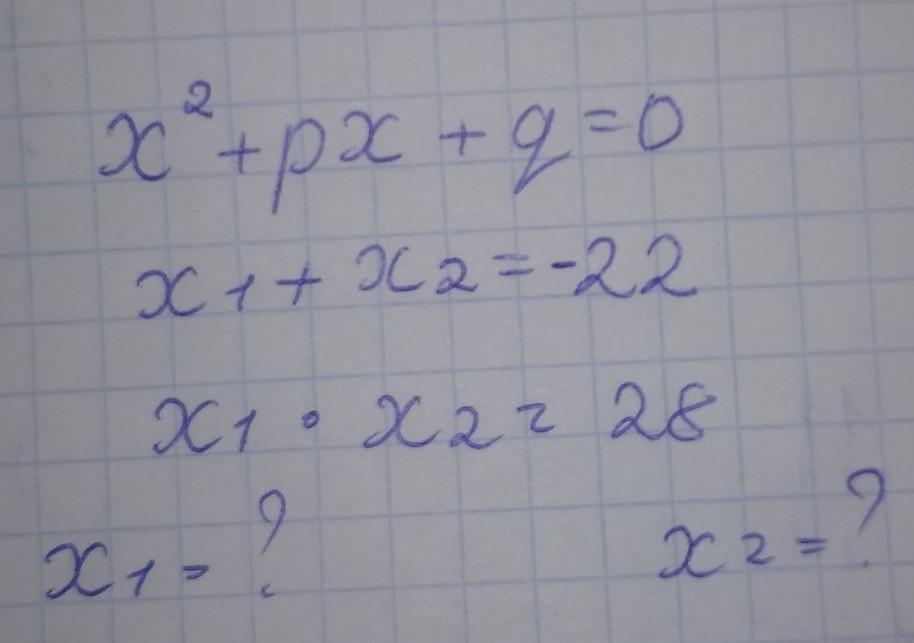 x² + px + q = 0
x1 + x2 = -22
x1 · x2 = 28
x1 = ? x2 = ?